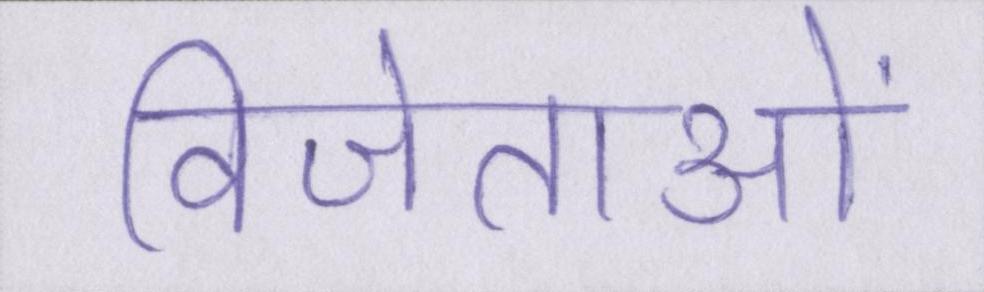 विजेताओं